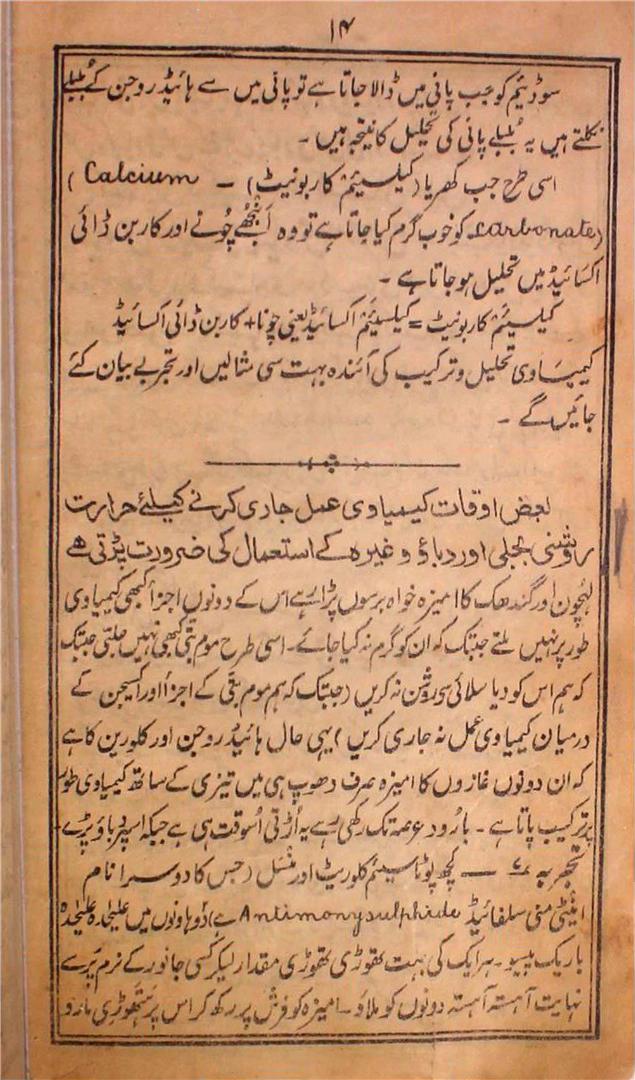 ۱۴
سوڈیم کو جب پانی میں ڈالا جاتا ہے تو پانی میں سے ہائیڈروجن کے بلبلے
نکلتے ہیں یہ بلبلے پانی کی تحلیل کا نتیجہ ہیں ۔
اسی طرح جب کھریا (کیلسیئم کاربونیٹ) ۔ Calcium)
(carbonate کو خوب گرم کیا جاتا ہے تو وہ اَن بجھے چُونے اور کاربن ڈائی
اکسائیڈ میں تحلیل ہو جاتا ہے ۔
کیلسیئم کاربونیٹ = کیلسیئم اکسائیڈ یعنی چونا + کاربن ڈائی اکسائیڈ
کیمیاوی تحلیل و ترکیب کی آئندہ بہت سی مثالیں اور تجربے بیان کئے
جائیں گے ۔
بعض اوقات کیمیاوی عمل جاری کرنے کیلئے حرارت
روشنی بجلی اور دباؤ وغیرہ کے استعمال کی ضرورت پڑتی ہے
لہچون اور گندھک کا امیزہ خواہ برسوں پڑا رہے اس کے دونوں اجزأ کبھی کیمیاوی
طور پر نہیں ملتے جبتک کہ ان کو گرم نہ کیا جائے۔ اسی طرح موم بتی کبھی نہیں جلتی جبتک
کہ ہم اس کو دیا سلائی سے روشن نہ کریں (جبتک کہ ہم موم بتی کے اجزأ اور اکسیجن کے
درمیان کیمیاوی عمل نہ جاری کریں) یہی حال ہائیڈروجن اور کلورین کا ہے
کہ ان دونوں غازوں کا امیزہ صرف دھوپ ہی میں تیزی کے ساتھ کیمیاوی طور
پر ترکیب پاتا ہے ۔ بارُود عرصہ تک رکھی رہے یہ اُڑتی اُسوقت ہی ہے جبکہ اسپر دباؤ پڑے
تجربہ ۷ — کچھ پوٹاسیئم کلوریٹ اور منسل (جس کا دوسرا نام
اینٹی منی سلفائیڈ Antimony sulphide ہے) دو ہاونوں میں علیحدہ علیحدہ
باریک پیسو ۔ ہر ایک کی بہت تھوڑی تھوڑی مقدار لیکر کسی جانور کے نرم پر سے
نہایت آہستہ آہستہ دونوں کو ملاؤ ۔ امیزہ کو فرش پر رکھ کر اس پر ہتھوڑی مارو